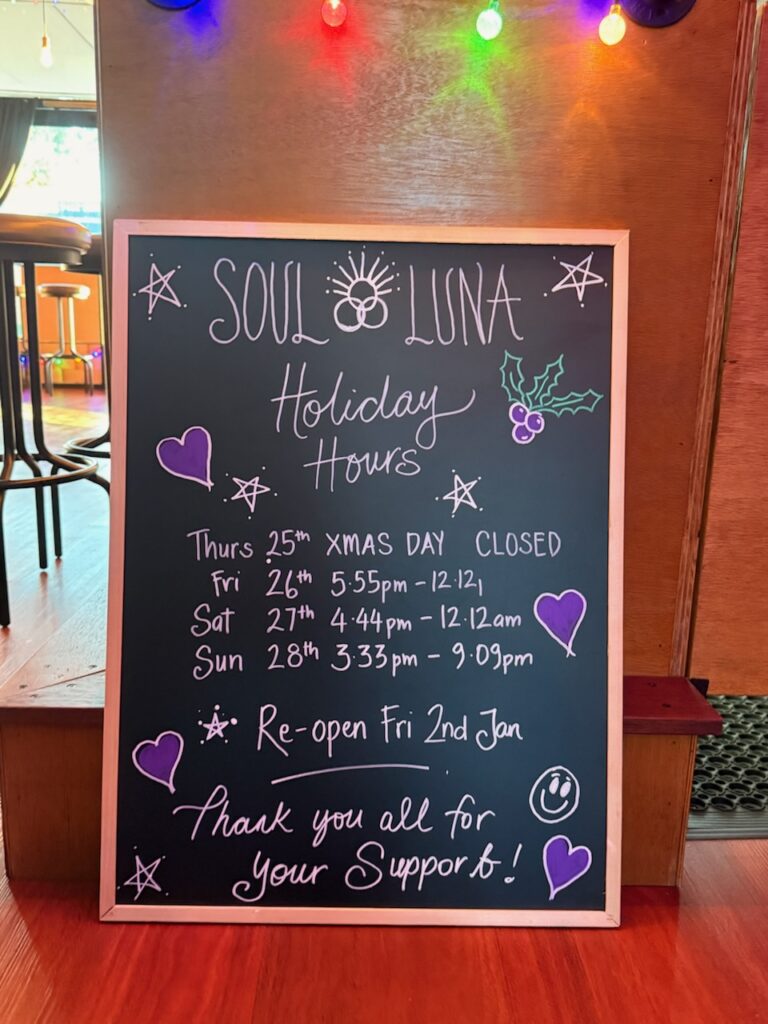 SOUL LUNA
Holiday
Hours
Thurs 25th XMAS DAY CLOSED
Fri 26th 5.55pm - 12.12
Sat 27th 4.44pm - 12.12am
Sun 28th 3.33pm - 9.09pm
Re-open Fri 2nd Jan
Thank you all for
your Support!